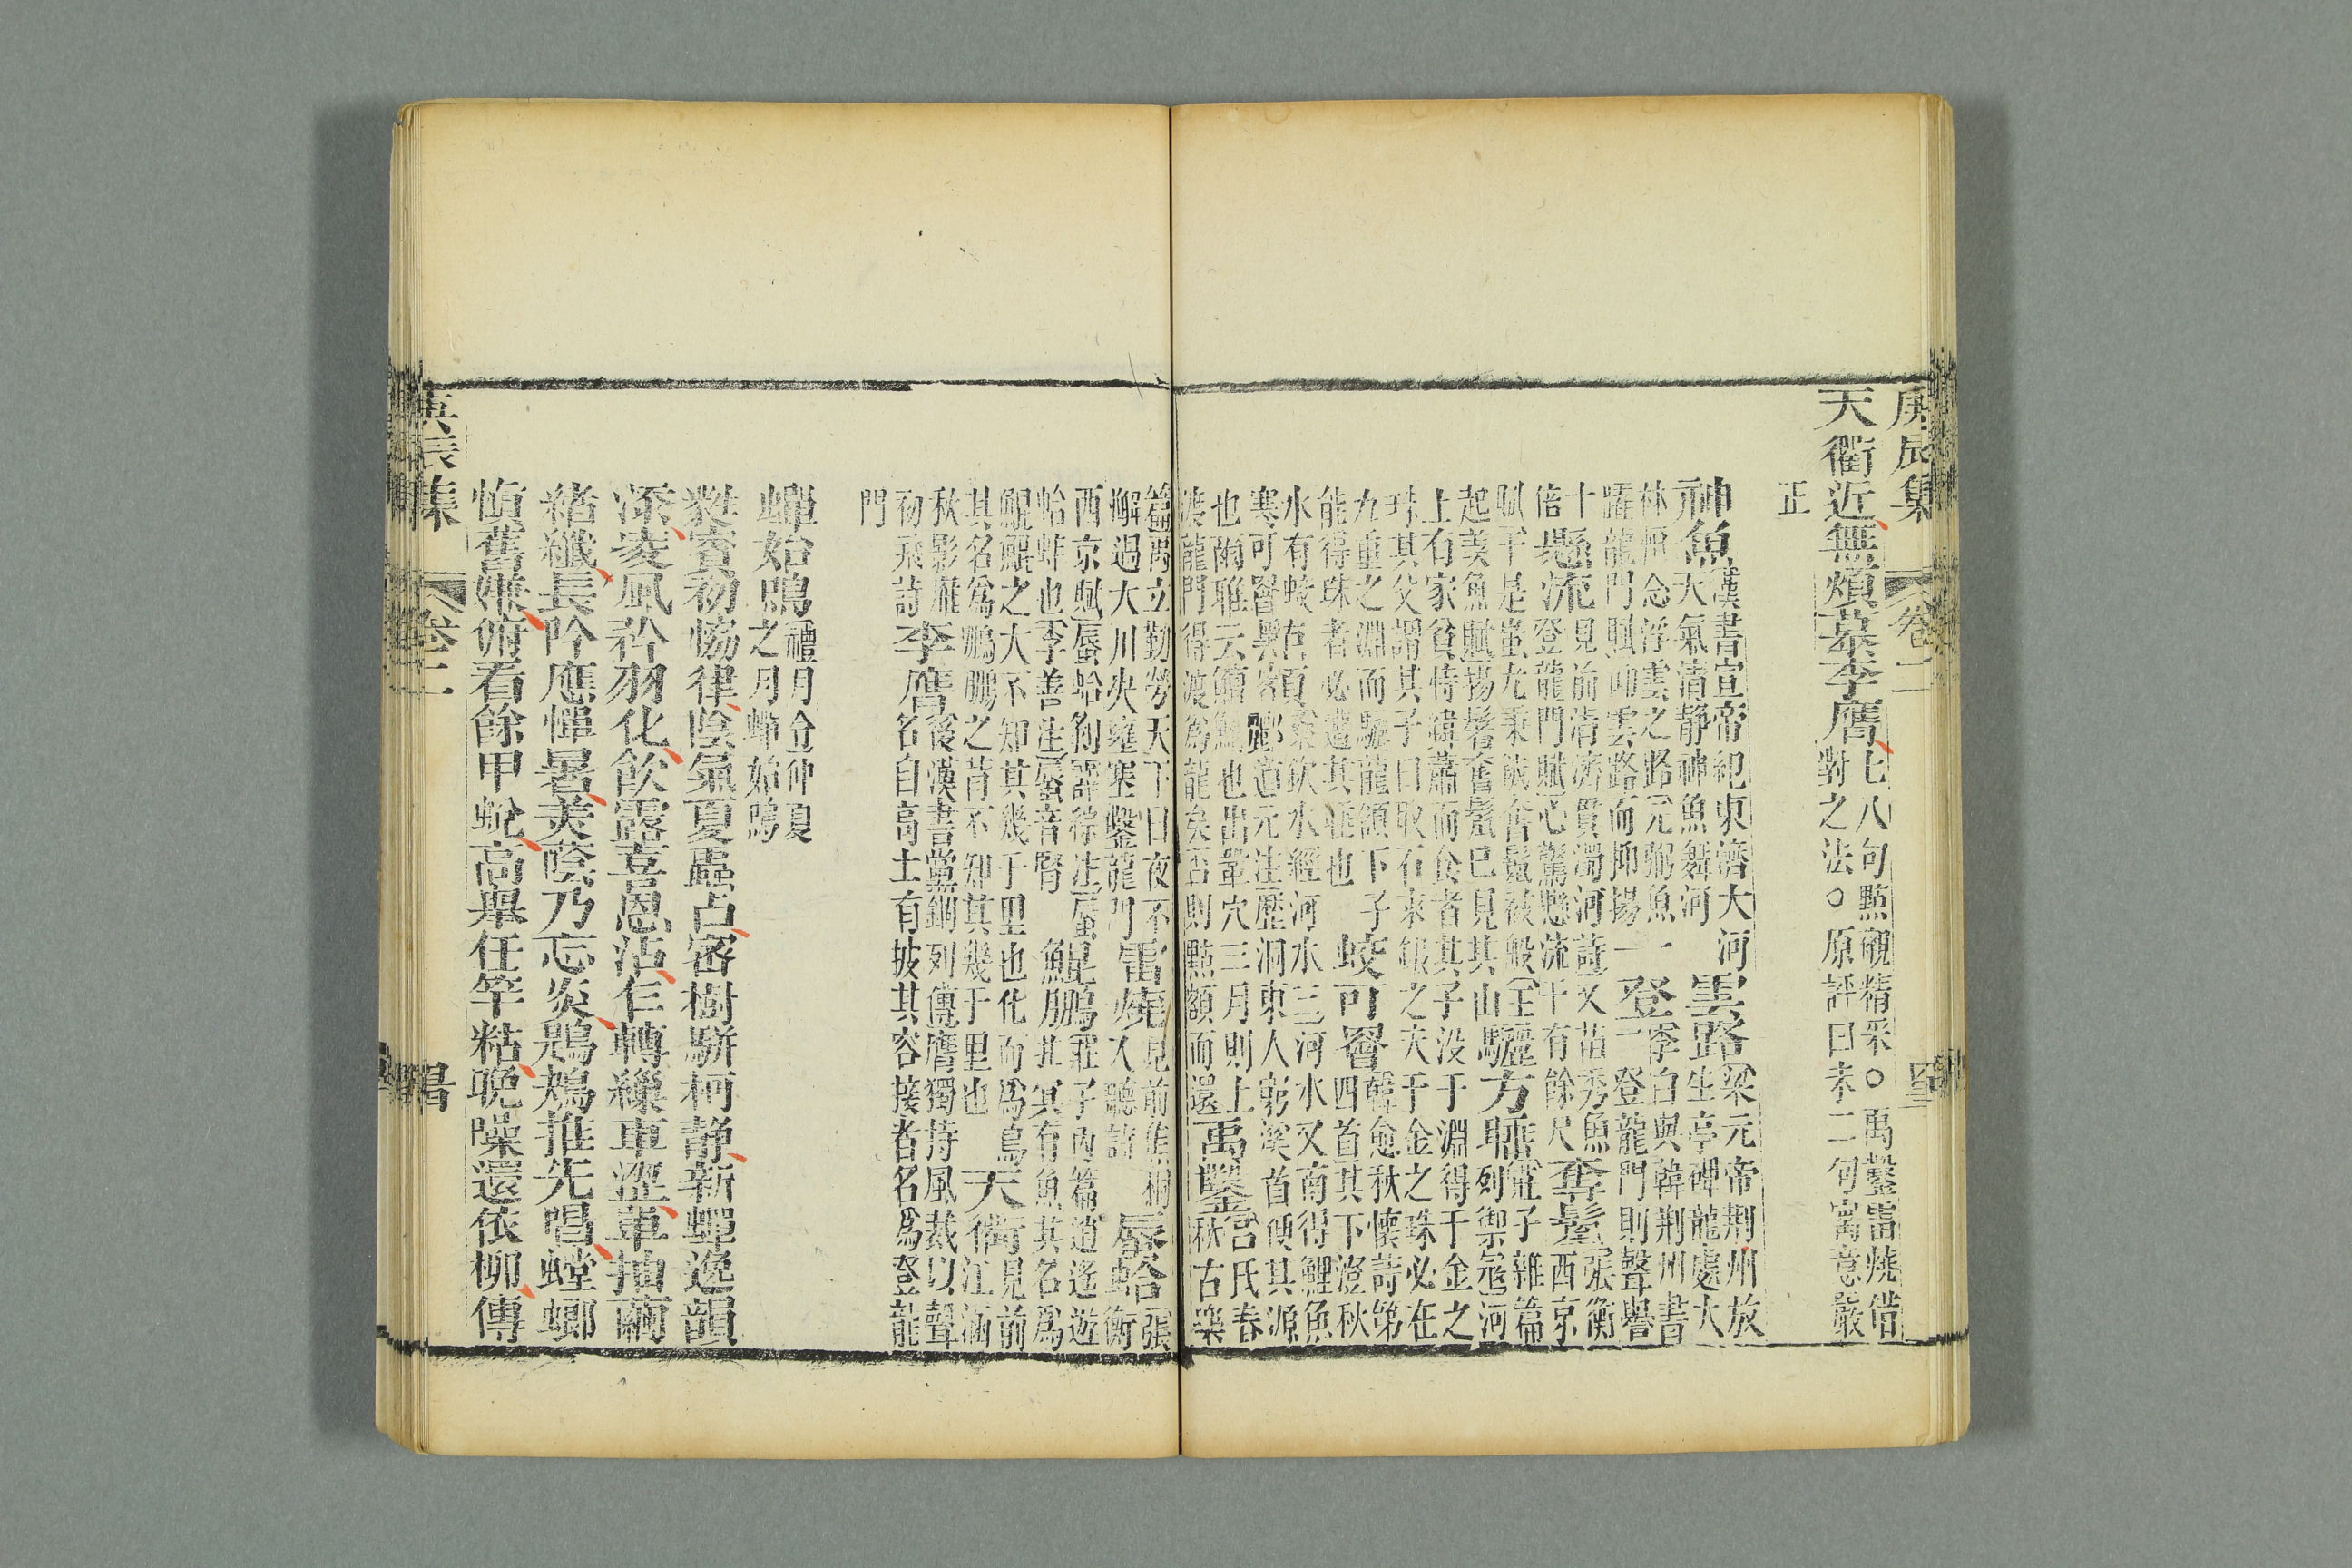 庚辰集 卷二
天衢近無煩慕李膺七八句點襯精采。禹鑿雷燒借
對之法。原評曰末二句寓意嚴
正
神魚漢書宣帝祀東濟大河
天氣清靜神魚舞河
雲路梁元帝荆州放
生亭碑龍處大
林恒念浮雲之路元弼魚
躍龍門賦仰雲路而抑揚
登李白與韓荆州書
一登龍門則聲譽
十
倍
懸流見前清濟貫濁河詩又苗秀魚
登龍門賦心驚懸流千有餘尺
奪鬐張衡
西京
賦于是蚩尤秉鉞奮鬣被般王
起美魚賦揚鬐奮鬣已見其山
驪方睡莊子雜篇
列禦寇河
上有家貧恃緯蕭而食者其子没于淵得千金之
珠其父謂其子曰取石來鍛之夫千金之珠必在
九重之淵而驪龍頷下子
能得珠者必遭其睡也
蛟可罾韓愈秋懷詩第
四首其下澄秋
水有蛟
寒可罾
酈道元注歷洞東人窮溪首便其源
也爾雅云鱣鮪也出鞏穴三月則上
渡龍門得渡爲龍矣否則點額而還
禹鑿呂氏春
秋古樂
篇禹立勤勞天下日夜不
懈過大川決壅塞鑿龍門
雷燒見前焦桐
入聽詩
蜃蛤張
衡
西京賦蜃蛤剥薛綜注蜃
蛤蚌也李善注蜃音腎
鯤鵬莊子内篇逍遙遊
魚
鯤鯤之大不知其幾千里也化而爲鳥
其名爲鵬鵬之背不知其幾千里也
天衢見前
江涵
秋影雁
初飛詩
李膺後漢書黨錮列傳膺獨持風裁以聲
名自高士有被其容接者名爲登龍
門
蟬始鳴禮月令仲夏
之月蟬始鳴
蕤賓初協律陰氣夏蟲占密樹駢柯靜新蟬逸韻
添凌風矜羽化飲露喜恩沾乍轉繅車澀單抽繭
緒纖長吟應憚暑美蔭乃忘炎鶗鴂推先唱螳螂
愼舊嫌俯看餘甲蛻高舉任竿粘晚噪還依柳傳
庚辰集 卷二